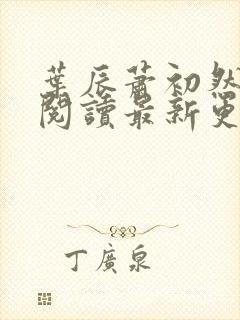 葉辰蕭初然
閱讀最新更
丁廣泉